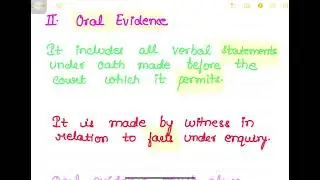 II. Oral Evidence
It includes all verbal statements
under oath made before the
court which it permits.
It is made by witness in
relation to facts under enquiry.
Oral evidence must